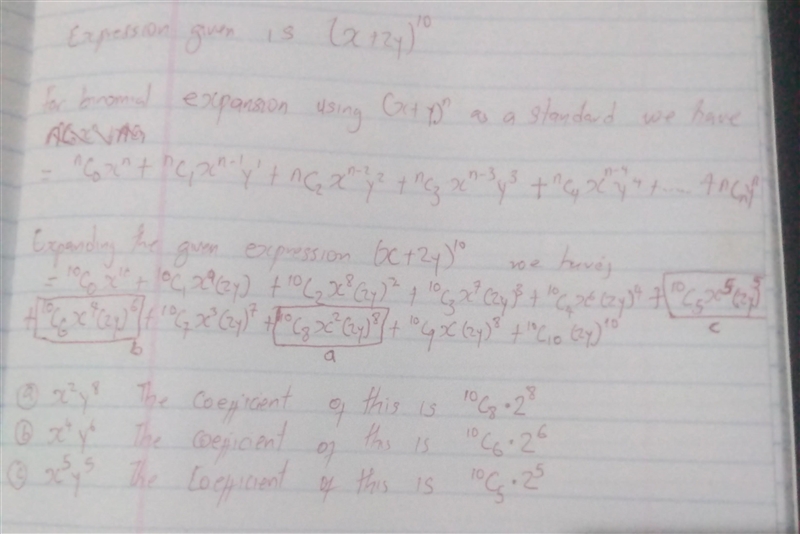 Expression given is (x+2y)¹⁰
For binomial expansion using (x+y)ⁿ as a standard we have
= ⁿC₀xⁿ + ⁿC₁xⁿ⁻¹y¹ + ⁿC₂xⁿ⁻²y² + ⁿC₃xⁿ⁻³y³ + ⁿC₄xⁿ⁻⁴y⁴ + ..... + ⁿCₙyⁿ
Expanding the given expression (x+2y)¹⁰ we have,
= ¹⁰C₀x¹⁰ + ¹⁰C₁x⁹(2y) + ¹⁰C₂x⁸(2y)² + ¹⁰C₃x⁷(2y)³ + ¹⁰C₄x⁶(2y)⁴ + ¹⁰C₅x⁵(2y)⁵
+ ¹⁰C₆x⁴(2y)⁶ + ¹⁰C₇x³(2y)⁷ + ¹⁰C₈x²(2y)⁸ + ¹⁰C₉x(2y)⁸ + ¹⁰C₁₀(2y)¹⁰
b a c
ⓐ x²y⁸ The coefficient of this is ¹⁰C₈·2⁸
ⓑ x⁴y⁶ The coefficient of this is ¹⁰C₆·2⁶
ⓒ x⁵y⁵ The Coefficient of this is ¹⁰C₅·2⁵